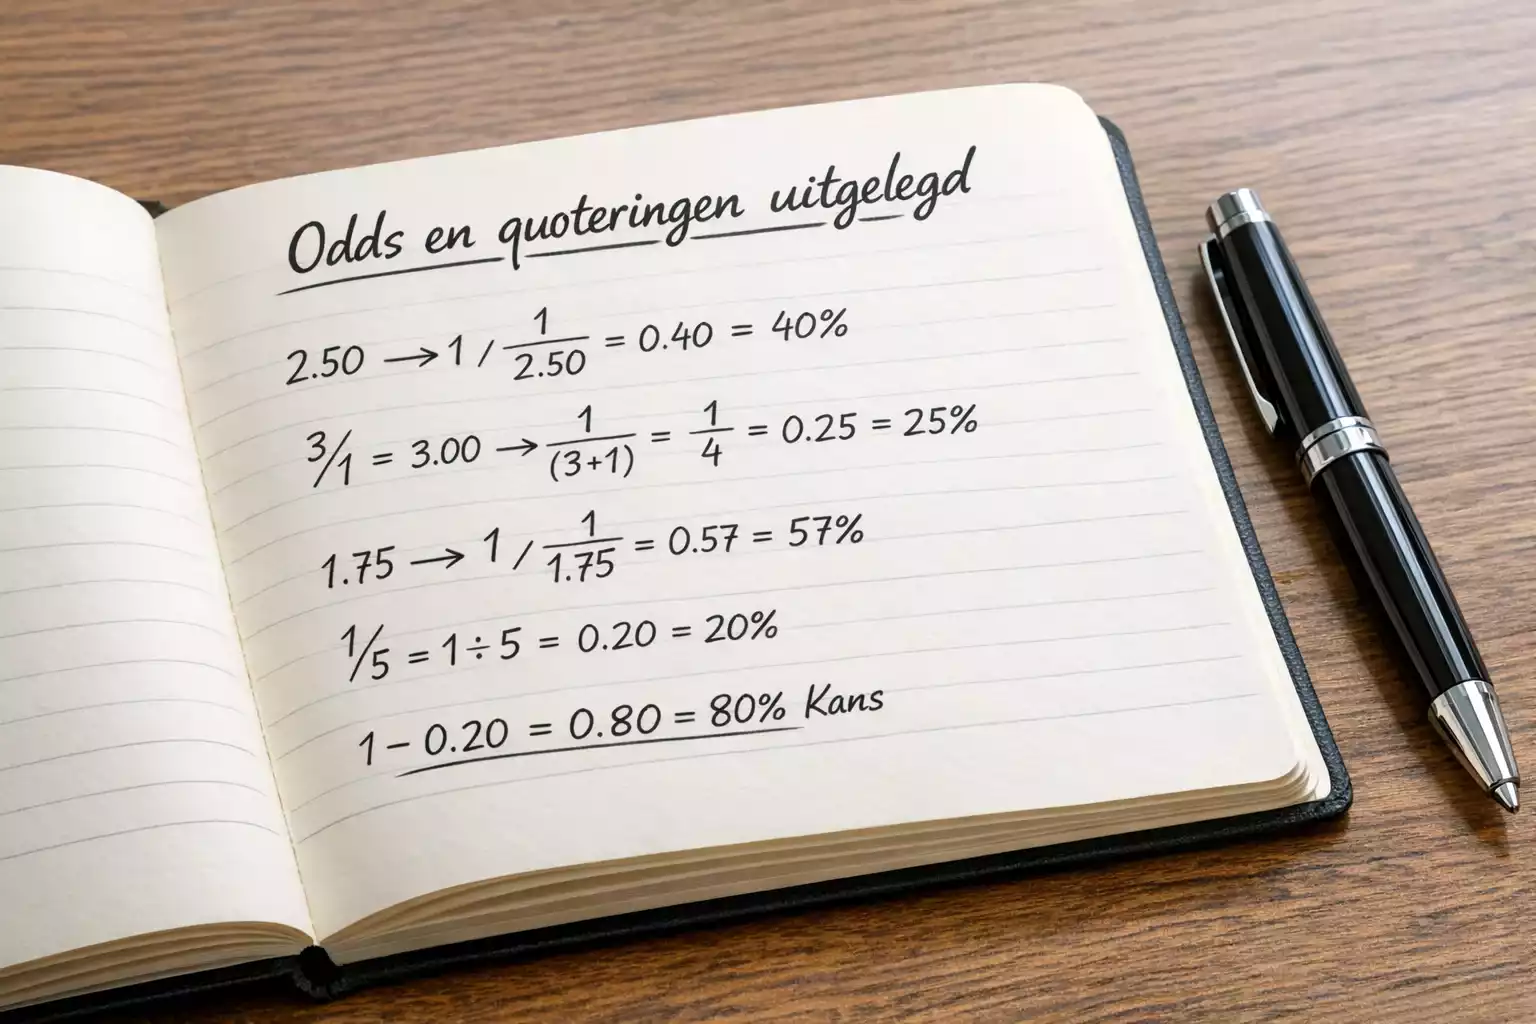 Odds en quoteringen uitgelegd
2.50 → 1 / 1/2.50 = 0.40 = 40%
3/1 = 3.00 → 1/(3+1) = 1/4 = 0.25 = 25%
1.75 → 1 / 1/1.75 = 0.57 = 57%
1/5 = 1 ÷ 5 = 0.20 = 20%
1 – 0.20 = 0.80 = 80% Kans